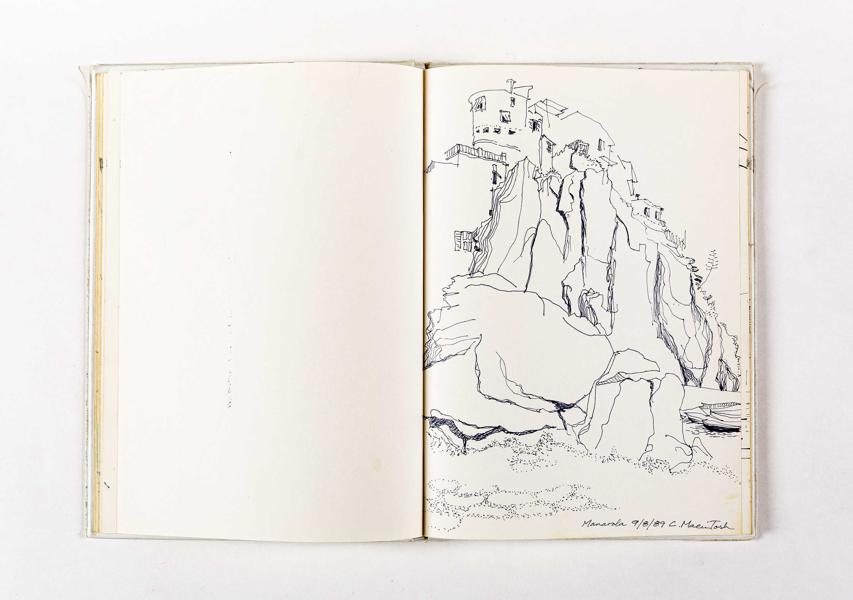 Manarola 9/8/89 C. MacinTosh